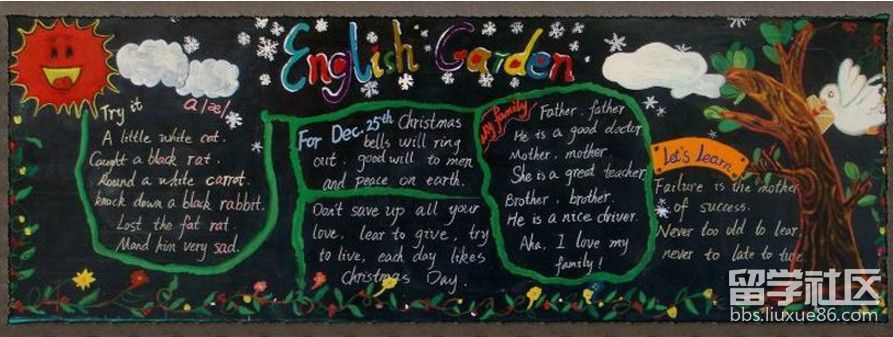 English Garden
Try it
a /æ/
A little white cat.
Caught a black rat.
Round a white carrot.
knock down a black rabbit.
Lost the fat rat.
Mand him very sad.
For Dec. 25th Christmas
bells will ring
out. good will to men
and peace on earth.
Don't save up all your
love, lear to give, try
to live, each day likes
Christmas Day.
My family
Father, father
He is a good doctor
Mother, mother
She is a great teacher
Brother, brother.
He is a nice driver.
Aha, I love my
family!
Let's Learn
Failure is the mother
of success.
Never too old to lear,
never to late to ture
留学社区
bbs.liuxue86.com